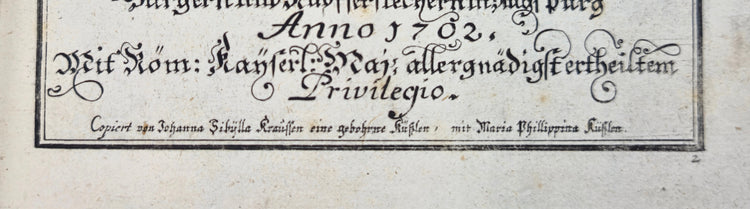 Burgern und Kupfferstechern in Augspurg
Anno 1702.
Mit Röm: Kayserl: Maj: allergnädigst ertheiltem
Privilegio.
Copiert von Johanna Sibÿlla Kraussen eine gebohrne Küßlen, mit Maria Phillippina Küßlen.
2